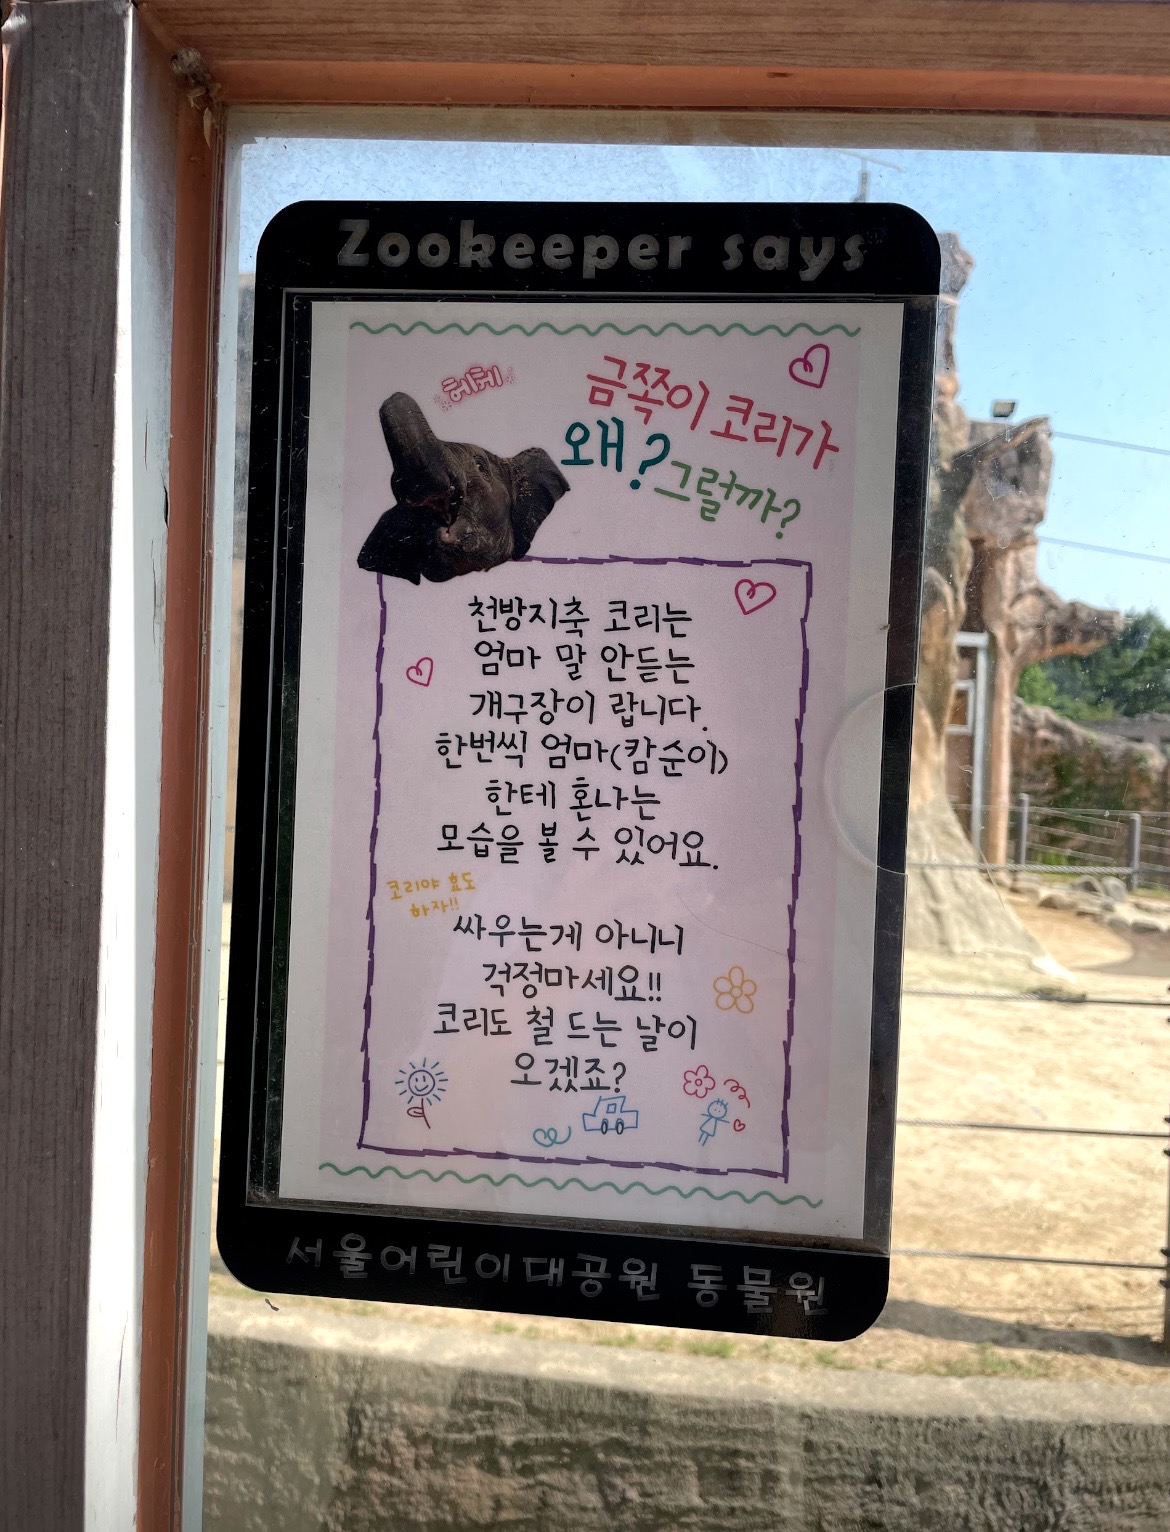 Zookeeper says
헤헤
금쪽이 코리가
왜? 그럴까?
천방지축 코리는
엄마 말 안듣는
개구장이 랍니다.
한번씩 엄마(캄순이)
한테 혼나는
모습을 볼 수 있어요.
코리야 효도
하자!!
싸우는게 아니니
걱정마세요!!
코리도 철 드는 날이
오겠죠?
서울어린이대공원 동물원